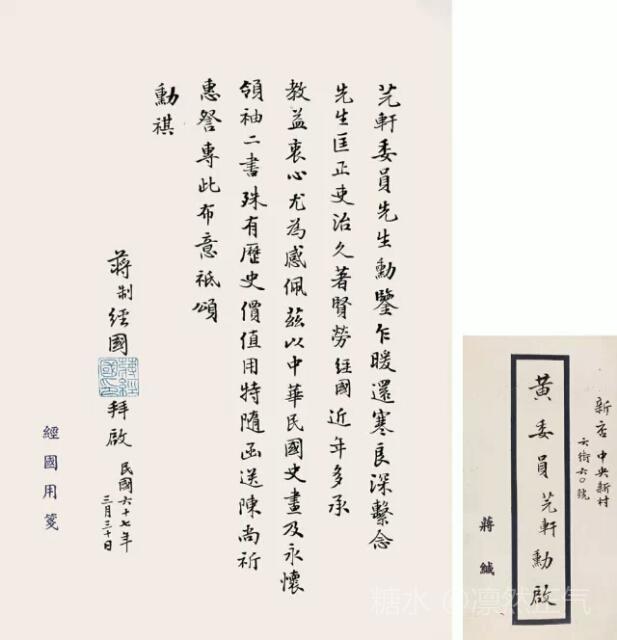 芫軒委員先生勳鑒乍暖還寒良深繫念
先生匡正吏治久著賢勞經國近年多承
教益衷心尤為感佩茲以中華民國史畫及永懷
領袖二書殊有歷史價值用特隨函送陳尚祈
惠詧專此布意祗頌
勳祺
蔣制經國拜啟
民國六十七年
三月三十日
經國用箋
新店中央新村
六街六〇號
黃委員芫軒勳啟
蔣緘
糖水 @凛然正气